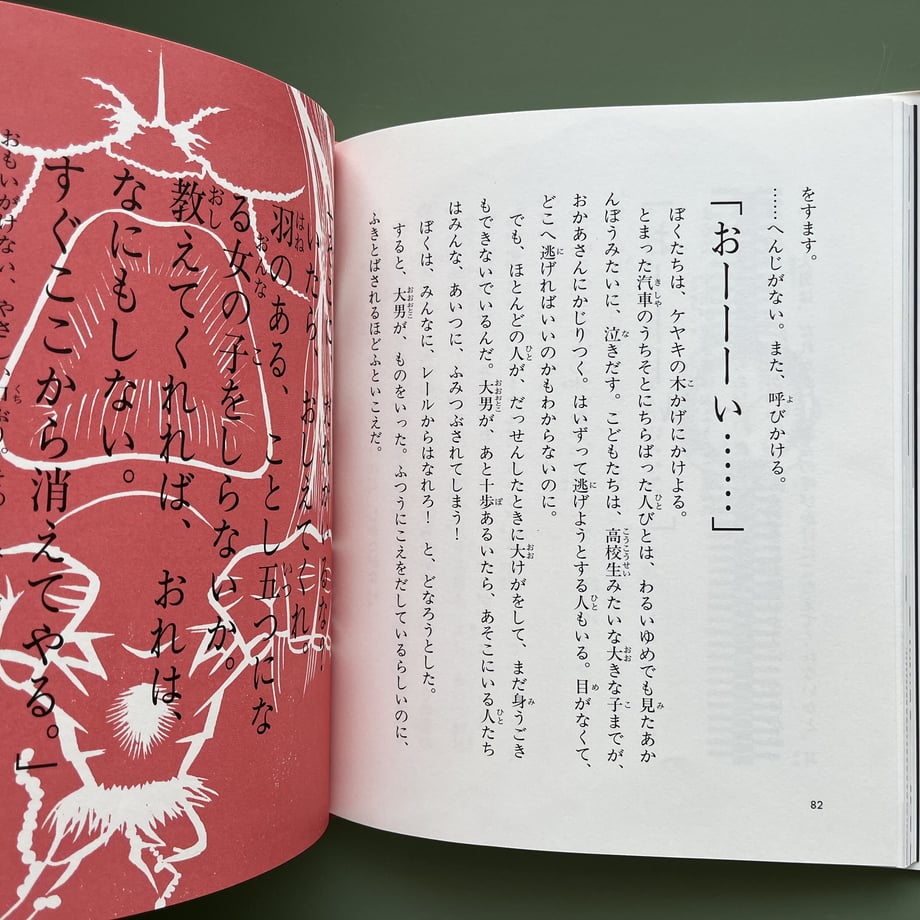 をすます。
……へんじがない。また、呼びかける。
「おーーーい……」
ぼくたちは、ケヤキの木かげにかけよる。
とまった汽車のうちそとにちらばった人びとは、わるいゆめでも見たあか
んぼうみたいに、泣きだす。こどもたちは、高校生みたいな大きな子までが、
おかあさんにかじりつく。はいずって逃げようとする人もいる。目がなくて、
どこへ逃げればいいのかもわからないのに。
でも、ほとんどの人が、だっせんしたときに大けがをして、まだ身うごき
もできないでいるんだ。大男が、あと十歩あるいたら、あそこにいる人たち
はみんな、あいつに、ふみつぶされてしまう！
ぼくは、みんなに、レールからはなれろ！　と、どなろうとした。
すると、大男が、ものをいった。ふつうにこえをだしているらしいのに、
ふきとばされるほどふといこえだ。
82
いたら、おしえてくれ。
羽のある、ことし五つにな
る女の子をしらないか。
教えてくれれば、おれは、
なにもしない。
すぐここから消えてやる。」
おもいがけない、やさしい口ぶり。